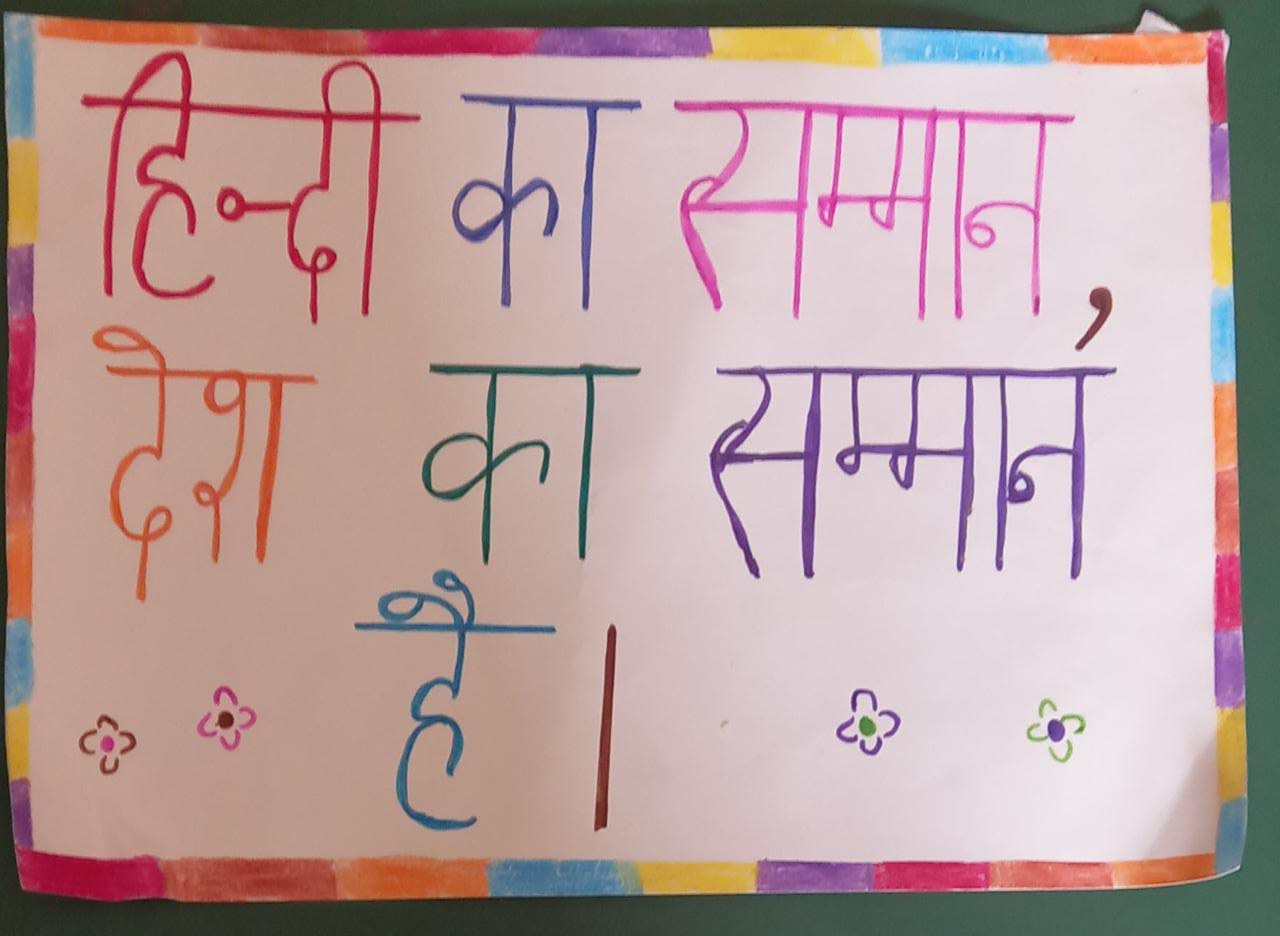 हिन्दी का सम्मान,
देश का सम्मान
है।